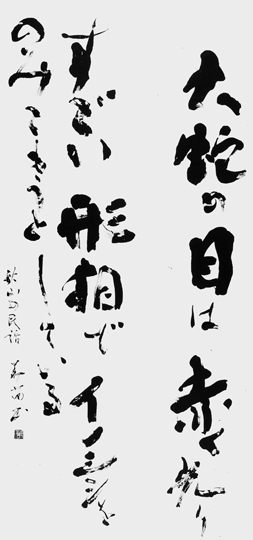 大蛇の目は赤く光り
すごい形相でイノシシを
のみこもうとしている